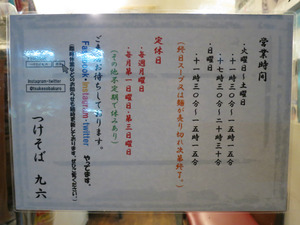 営業時間
・火曜日～土曜日
十一時三〇分～一五時一五分
十七時三〇分～二十時三十分
・日曜日
十一時三〇分～一五時一五分
(終日スープ又は麺が売り切れ次第終了。)
定休日
・毎週月曜日
・毎月第一日曜日・第三日曜日
(その他不定期で休みあり)
ご来店お待ちしております。
Facebook・Instagram・twitter やってます。
つけそば 九六
Instagram・twitter